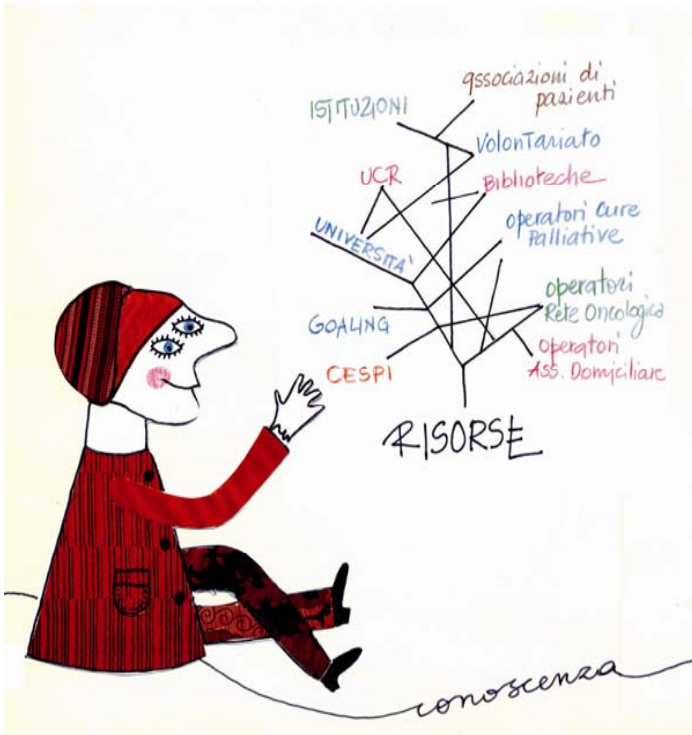 associazioni di
pazienti
ISTITUZIONI
Volontariato
UCR
Biblioteche
UNIVERSITÀ
operatori Cure
Palliative
GOALING
operatori
Rete Oncologica
CESPI
operatori
Ass. Domiciliare
RISORSE
conoscenza